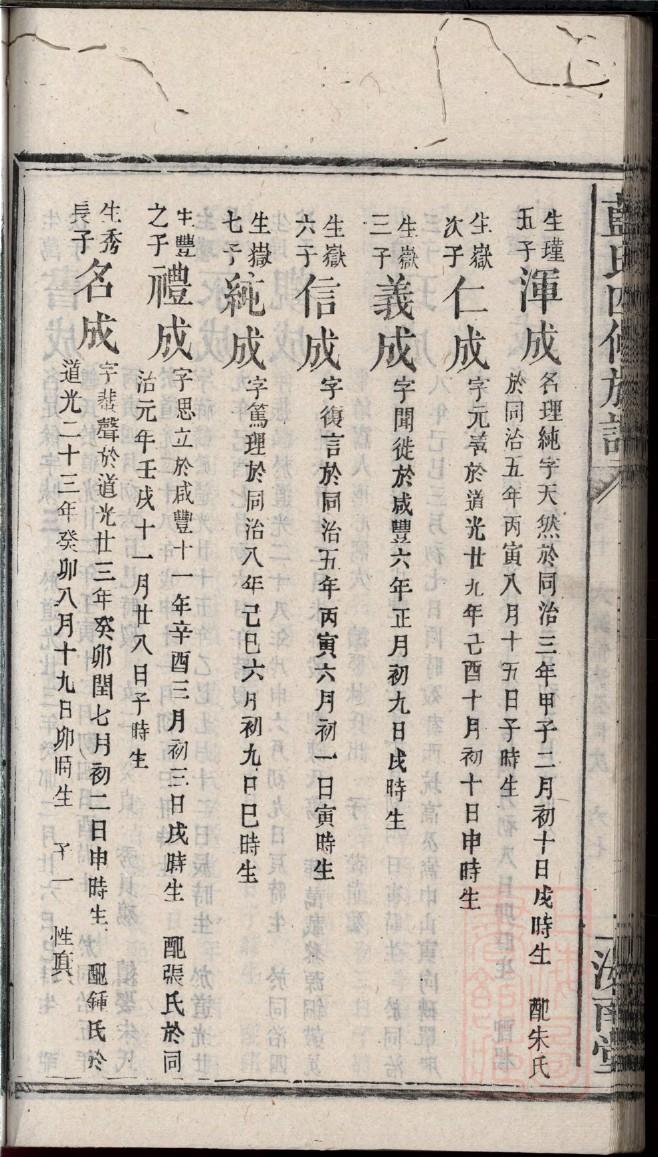 藍氏四修族譜
汝南堂
生瑾五子 渾成 名理純字天然於同治三年甲子二月初十日戌時生 配朱氏
於同治五年丙寅八月十五日子時生
生嶽次子 仁成 字元義於道光廿九年己酉十月初十日申時生
生嶽三子 義成 字聞徙於咸豐六年正月初九日戌時生
生嶽六子 信成 字復言於同治五年丙寅六月初一日寅時生
生嶽七子 純成 字篤理於同治八年己巳六月初九日巳時生
生豐之子 禮成 字思立於咸豐十一年辛酉三月初三日戌時生 配張氏於同
治元年壬戌十一月廿八日子時生
生秀長子 名成 字蜚聲於道光廿三年癸卯閏七月初二日申時生 配鍾氏於
道光二十三年癸卯八月十九日卯時生 子一 性真